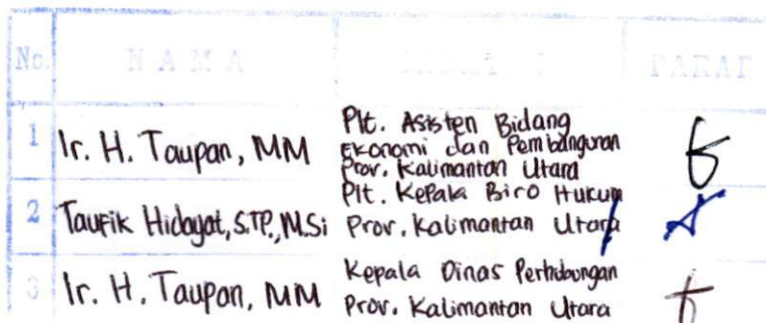 No. NAMA JABATAN PARAF
1 Ir. H. Taupan, MM Plt. Asisten Bidang
Ekonomi dan Pembangunan
Prov. Kalimantan Utara
2 Taufik Hidayat, S.TP., M.Si Plt. Kepala Biro Hukum
Prov. Kalimantan Utara
3 Ir. H. Taupan, MM Kepala Dinas Perhubungan
Prov. Kalimantan Utara